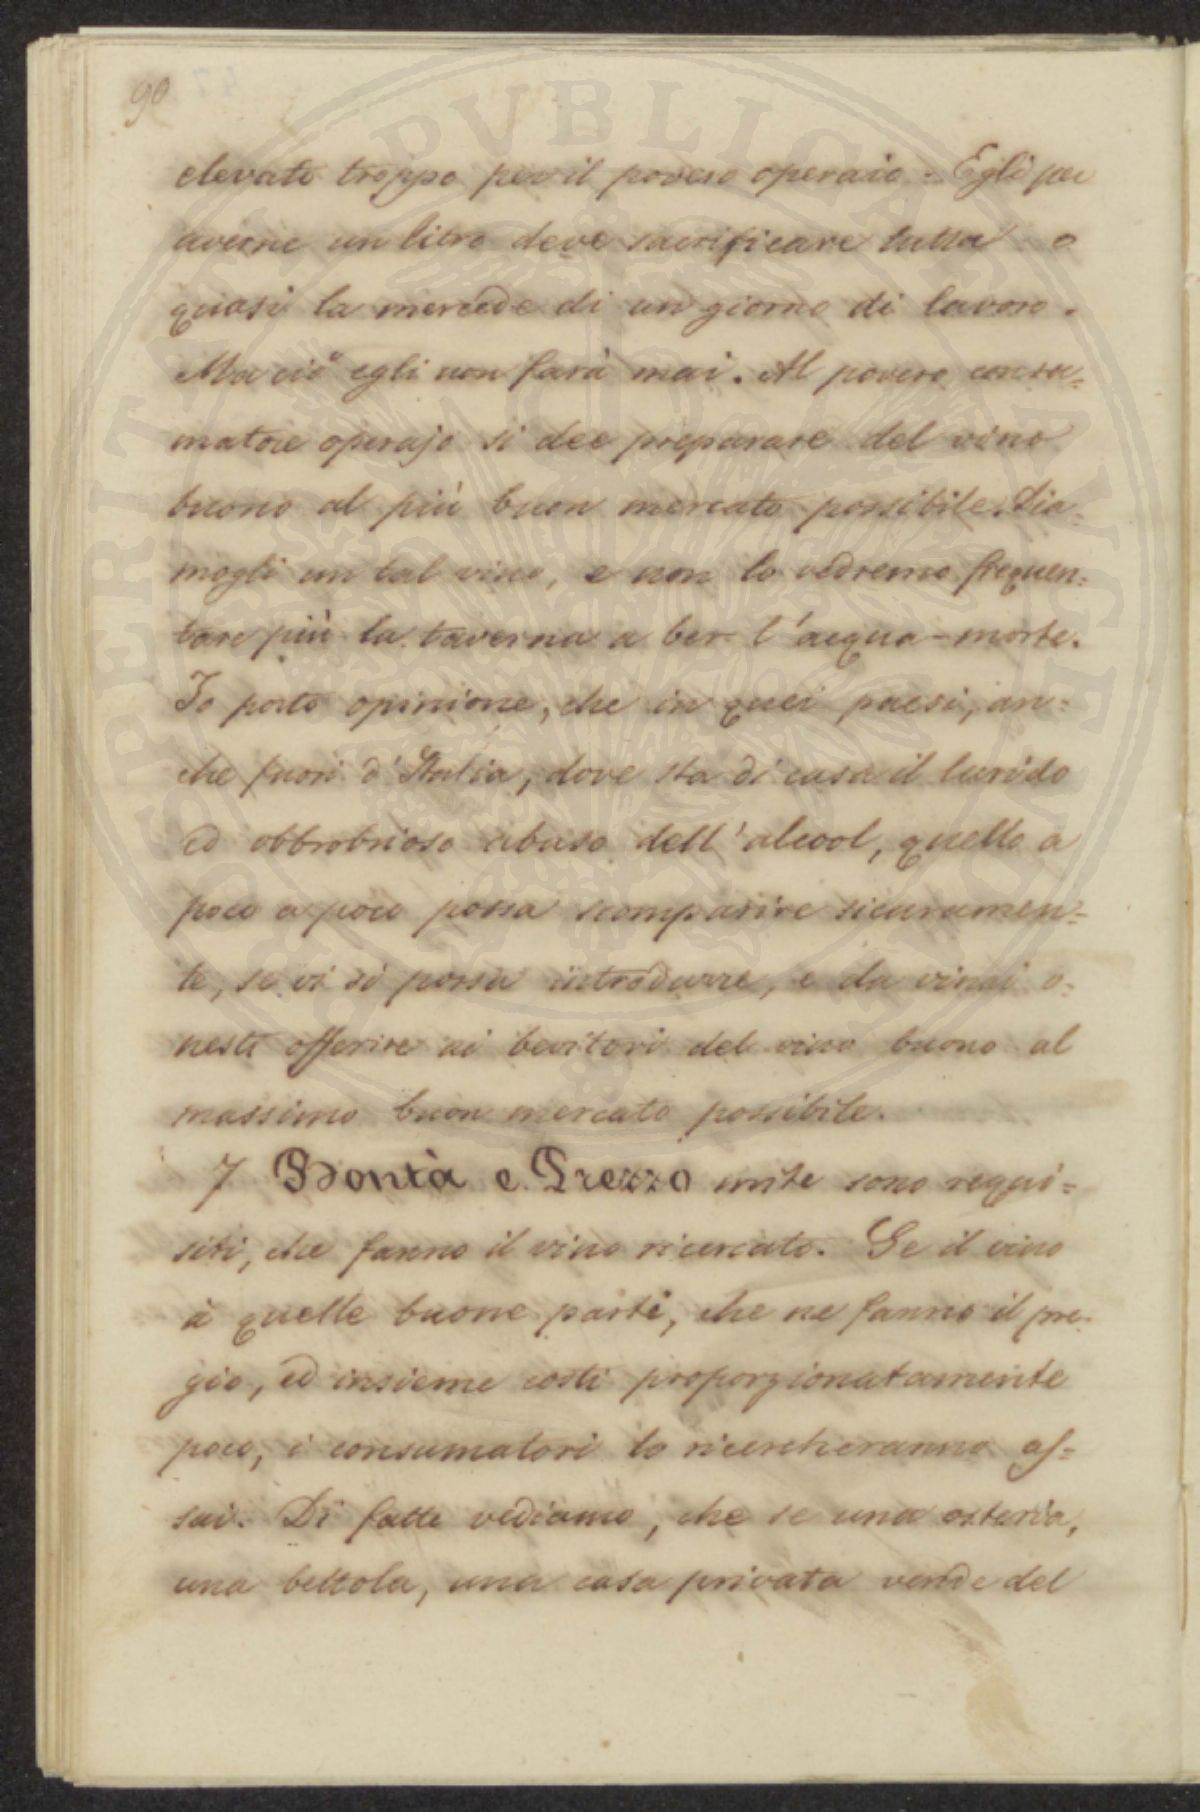 90
elevato troppo per il povero operaio. Egli per
averne un litro deve sacrificare tutta o
quasi la mercede di un giorno di lavoro.
Ma ciò egli non farà mai. Al povero consu=
matore operajo si dee preparare del vino
buono al più buon mercato possibile. Dia=
mogli un tal vino, e non lo vedremo frequen=
tare più la taverna a ber l'acqua-morte.
Io porto opinione, che in quei paesi, an=
che fuori d'Italia, dove sta di casa il lurido
ed obbrobrioso abuso dell'alcool, quello a
poco a poco possa scomparire sicuramen=
te, se vi si possa introdurre, e da vinai o=
nesti offerire ai bevitori del vino buono al
massimo buon mercato possibile.
7 Bontà e Prezzo unite sono requi=
siti, che fanno il vino ricercato. Se il vino
à quelle buone parti, che ne fanno il pre=
gio, ed insieme costi proporzionatamente
poco, i consumatori lo ricercheranno as=
sai. Di fatto vediamo, che se una osteria,
una bettola, una casa privata vende del
PROSPERITATI PVBLICAE AVGENDAE